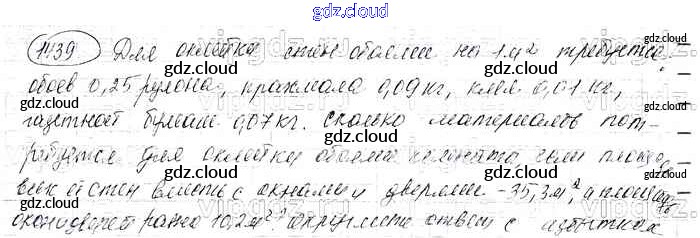 gdz.cloud
1439 Для оклейки стен обоями на 1 м² требуется
обоев 0,25 рулона, крахмала 0,09 кг, клея 0,01 кг,
газетной бумаги 0,07 кг. Сколько материалов пот-
ребуется для оклейки обоями комнаты если площадь
всех стен вместе с окнами и дверями - 35,3 м², а площадь
окон и дверей равна 10,2 м²? Округлите ответ с избытком